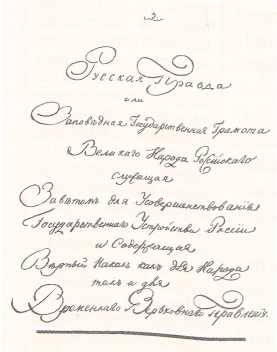 2
Русская Правда
или
Заповедная Государственная Грамота
Великаго Народа Россійскаго
служащая
Завѣтомъ для Усовершенствованія
Государственнаго Устройства Россіи
и Содержащая
Вѣрный Наказъ какъ для Народа
такъ и для
Временнаго Верховнаго Правленія.